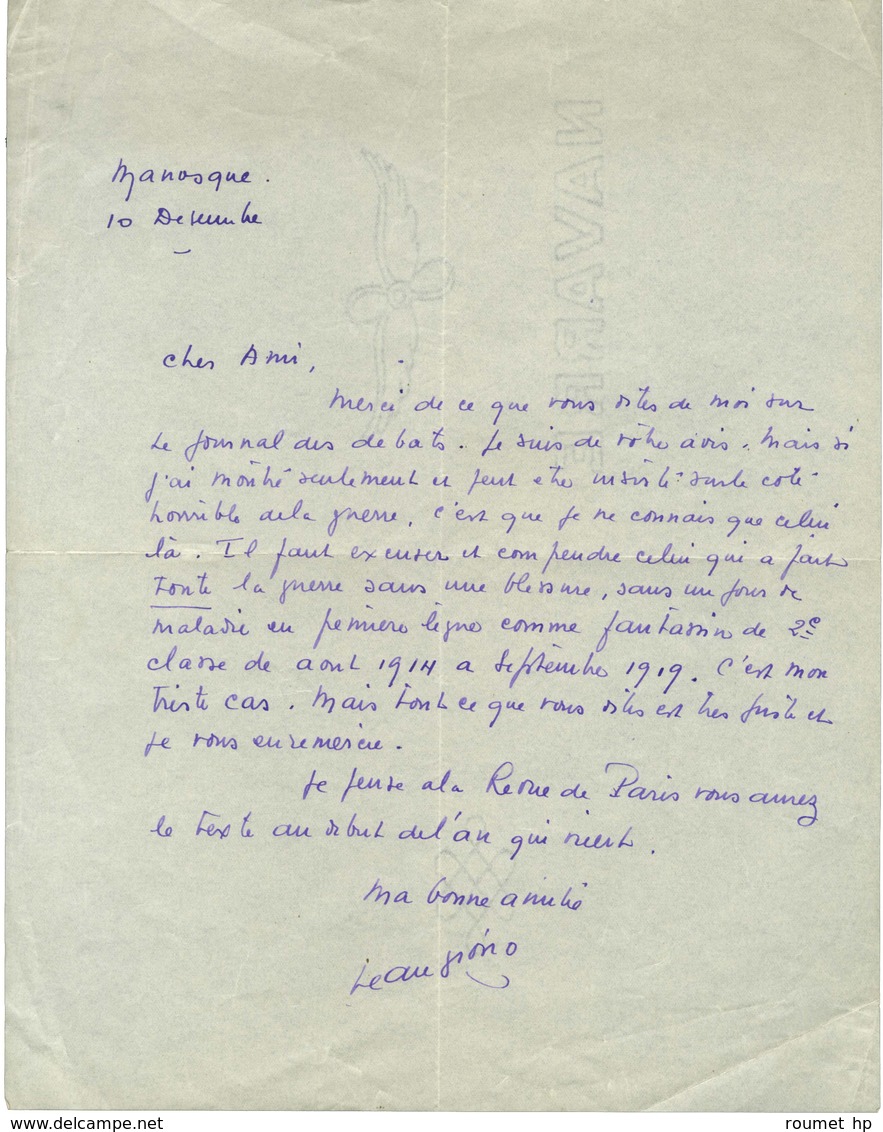 Manosque.
10 Desembre
NAVARRE
cher Ami,
Merci de ce que vous dites de moi sur
Le Journal des debats. Je suis de votre avis. Mais si
j'ai montré seulement et peut etre insisté sur le coté
horrible de la guerre, c'est que je ne connais que celui
là. Il faut excuser et comprendre celui qui a fait
toute la guerre sans une blessure, sans un jour de
maladie en premiere ligne comme fantassin de 2e
classe de aout 1914 a Septembre 1919. C'est mon
triste cas. Mais tout ce que vous dites est tres juste et
je vous en remercie.
Je pense a la Revue de Paris vous aurez
le texte au debut de l'an qui vient.
Ma bonne amitié
Jean Giono
delcampe.net
roumet hp